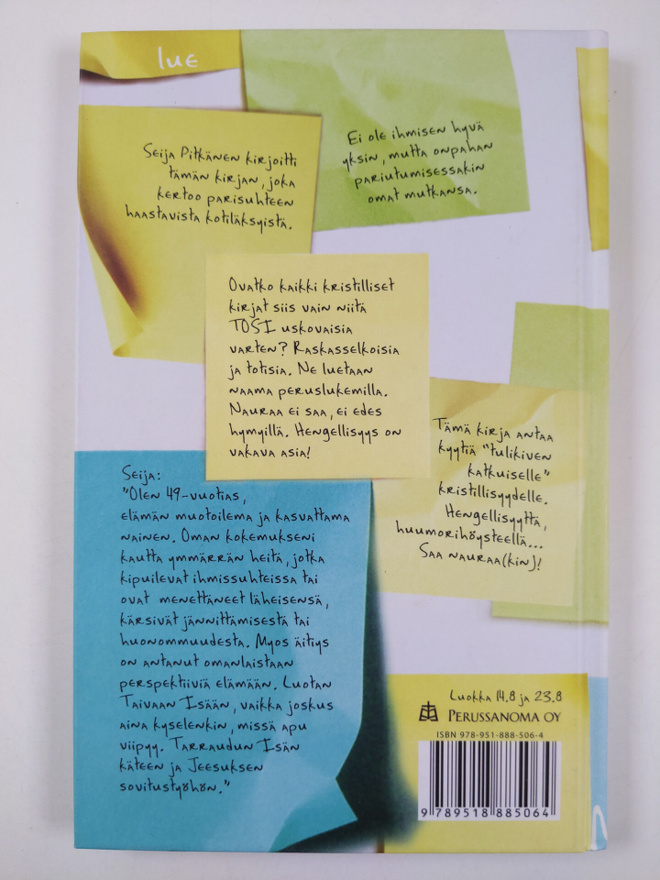 lue
Seija Pitkänen kirjoitti
tämän kirjan, joka
kertoo parisuhteen
haastavista kotiläksyistä.
Ei ole ihmisen hyvä
yksin, mutta onpahan
pariutumisessakin
omat mutkansa.
Ovatko kaikki kristilliset
kirjat siis vain niitä
TOSI uskovaisia
varten? Raskasselkoisia
ja totisia. Ne luetaan
naama peruslukemilla.
Nauraa ei saa, ei edes
hymyillä. Hengellisyys on
vakava asia!
Tämä kirja antaa
kyytiä "tulikiven
katkuiselle"
kristillisyydelle.
Hengellisyyttä,
huumorihöysteellä...
Saa nauraa(kin)!
Seija:
"Olen 49-vuotias,
elämän muotoilema ja kasvattama
nainen. Oman kokemukseni
kautta ymmärrän heitä, jotka
kipuilevat ihmissuhteissa tai
ovat menettäneet läheisensä,
kärsivät jännittämisestä tai
huonommuudesta. Myos äitiys
on antanut omanlaistaan
perspektiiviä elämään. Luotan
Taivaan Isään, vaikka joskus
aina kyselenkin, missä apu
viipyy. Tarraudun Isän
käteen ja Jeesuksen
sovitustyöhön."
Luokka 14.8 ja 23.8
PERUSSANOMA OY
ISBN 978-951-888-506-4
9 789518 885064